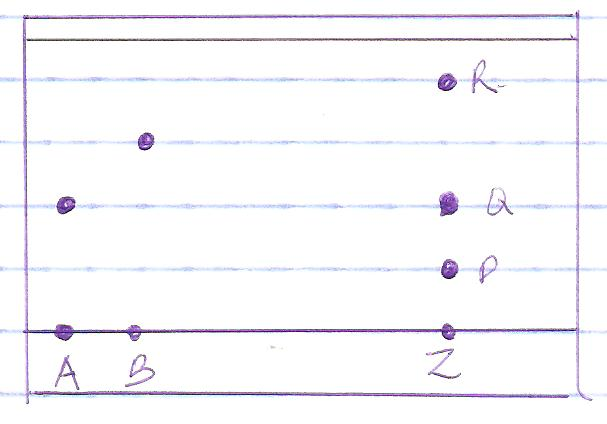 R
Q
P
A B Z